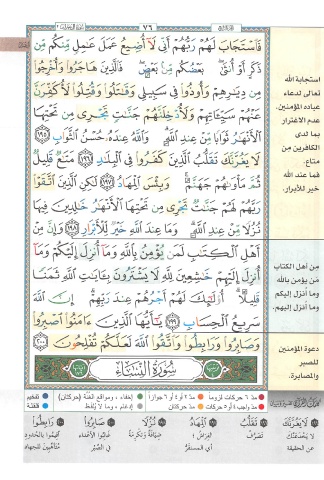 ٧٦
فَاسْتَجَابَ لَهُمْ رَبُّهُمْ أَنِّى لَآ أُضِيعُ عَمَلَ عَٰمِلٍ مِّنكُم مِّن
ذَكَرٍ أَوْ أُنثَىٰ ۖ بَعْضُكُم مِّنۢ بَعْضٍ ۖ فَالَّذِينَ هَاجَرُوا۟ وَأُخْرِجُوا۟
مِن دِيَٰرِهِمْ وَأُوذُوا۟ فِى سَبِيلِى وَقَٰتَلُوا۟ وَقُتِلُوا۟ لَأُكَفِّرَنَّ
عَنْهُمْ سَيِّـَٔاتِهِمْ وَلَأُدْخِلَنَّهُمْ جَنَّٰتٍ تَجْرِى مِن تَحْتِهَا
الْأَنْهَٰرُ ثَوَابًا مِّنْ عِندِ اللَّهِ ۗ وَاللَّهُ عِندَهُۥ حُسْنُ الثَّوَابِ ١٩٥
لَا يَغُرَّنَّكَ تَقَلُّبُ الَّذِينَ كَفَرُوا۟ فِى الْبِلَٰدِ ١٩٦ مَتَٰعٌ قَلِيلٌ
ثُمَّ مَأْوَىٰهُمْ جَهَنَّمُ ۚ وَبِئْسَ الْمِهَادُ ١٩٧ لَٰكِنِ الَّذِينَ اتَّقَوْا۟
رَبَّهُمْ لَهُمْ جَنَّٰتٌ تَجْرِى مِن تَحْتِهَا الْأَنْهَٰرُ خَٰلِدِينَ فِيهَا
نُزُلًا مِّنْ عِندِ اللَّهِ ۗ وَمَا عِندَ اللَّهِ خَيْرٌ لِّلْأَبْرَارِ ١٩٨ وَإِنَّ مِنْ
أَهْلِ الْكِتَٰبِ لَمَن يُؤْمِنُ بِاللَّهِ وَمَآ أُنزِلَ إِلَيْكُمْ وَمَآ
أُنزِلَ إِلَيْهِمْ خَٰشِعِينَ لِلَّهِ لَا يَشْتَرُونَ بِـَٔايَٰتِ اللَّهِ ثَمَنًا
قَلِيلًا ۗ أُو۟لَٰٓئِكَ لَهُمْ أَجْرُهُمْ عِندَ رَبِّهِمْ ۗ إِنَّ اللَّهَ
سَرِيعُ الْحِسَابِ ١٩٩ يَٰٓأَيُّهَا الَّذِينَ ءَامَنُوا۟ اصْبِرُوا۟
وَصَابِرُوا۟ وَرَابِطُوا۟ وَاتَّقُوا۟ اللَّهَ لَعَلَّكُمْ تُفْلِحُونَ ٢٠٠
سُورَةُ النِّسَاءِ
استجابة الله
تعالى لدعاء
عباده المؤمنين.
عدم الاغترار
بما لدى
الكافرين من
متاع.
فما عند الله
خير للأبرار.
من أهل الكتاب
من يؤمن بالله
وما أنزل إليكم
وما أنزل إليهم.
دعوة المؤمنين
للصبر
والمصابرة.
مدّ ٦ حركات لزوماً
مدّ ٢ أو ٤ أو ٦ جوازاً
إخفاء، ومواقع الغنّة (حركتان)
تفخيم
مدّ واجب ٤ أو ٥ حركات
مدّ حركتان
إدغام، وما لا يُلفظ
قلقلة
لَا يَغُرَّنَّكَ
لا يخدعنّك
عن الحقيقة
تَقَلُّبُ
تصرّف
الْمِهَادُ
الفراش؛
أي المستقرّ
نُزُلًا
ضيافة وتكرمة
صَابِرُوا۟
غالبوا الأعداء
في الصّبر
رَابِطُوا۟
أقيموا بالحدود
متأهّبين للجهاد